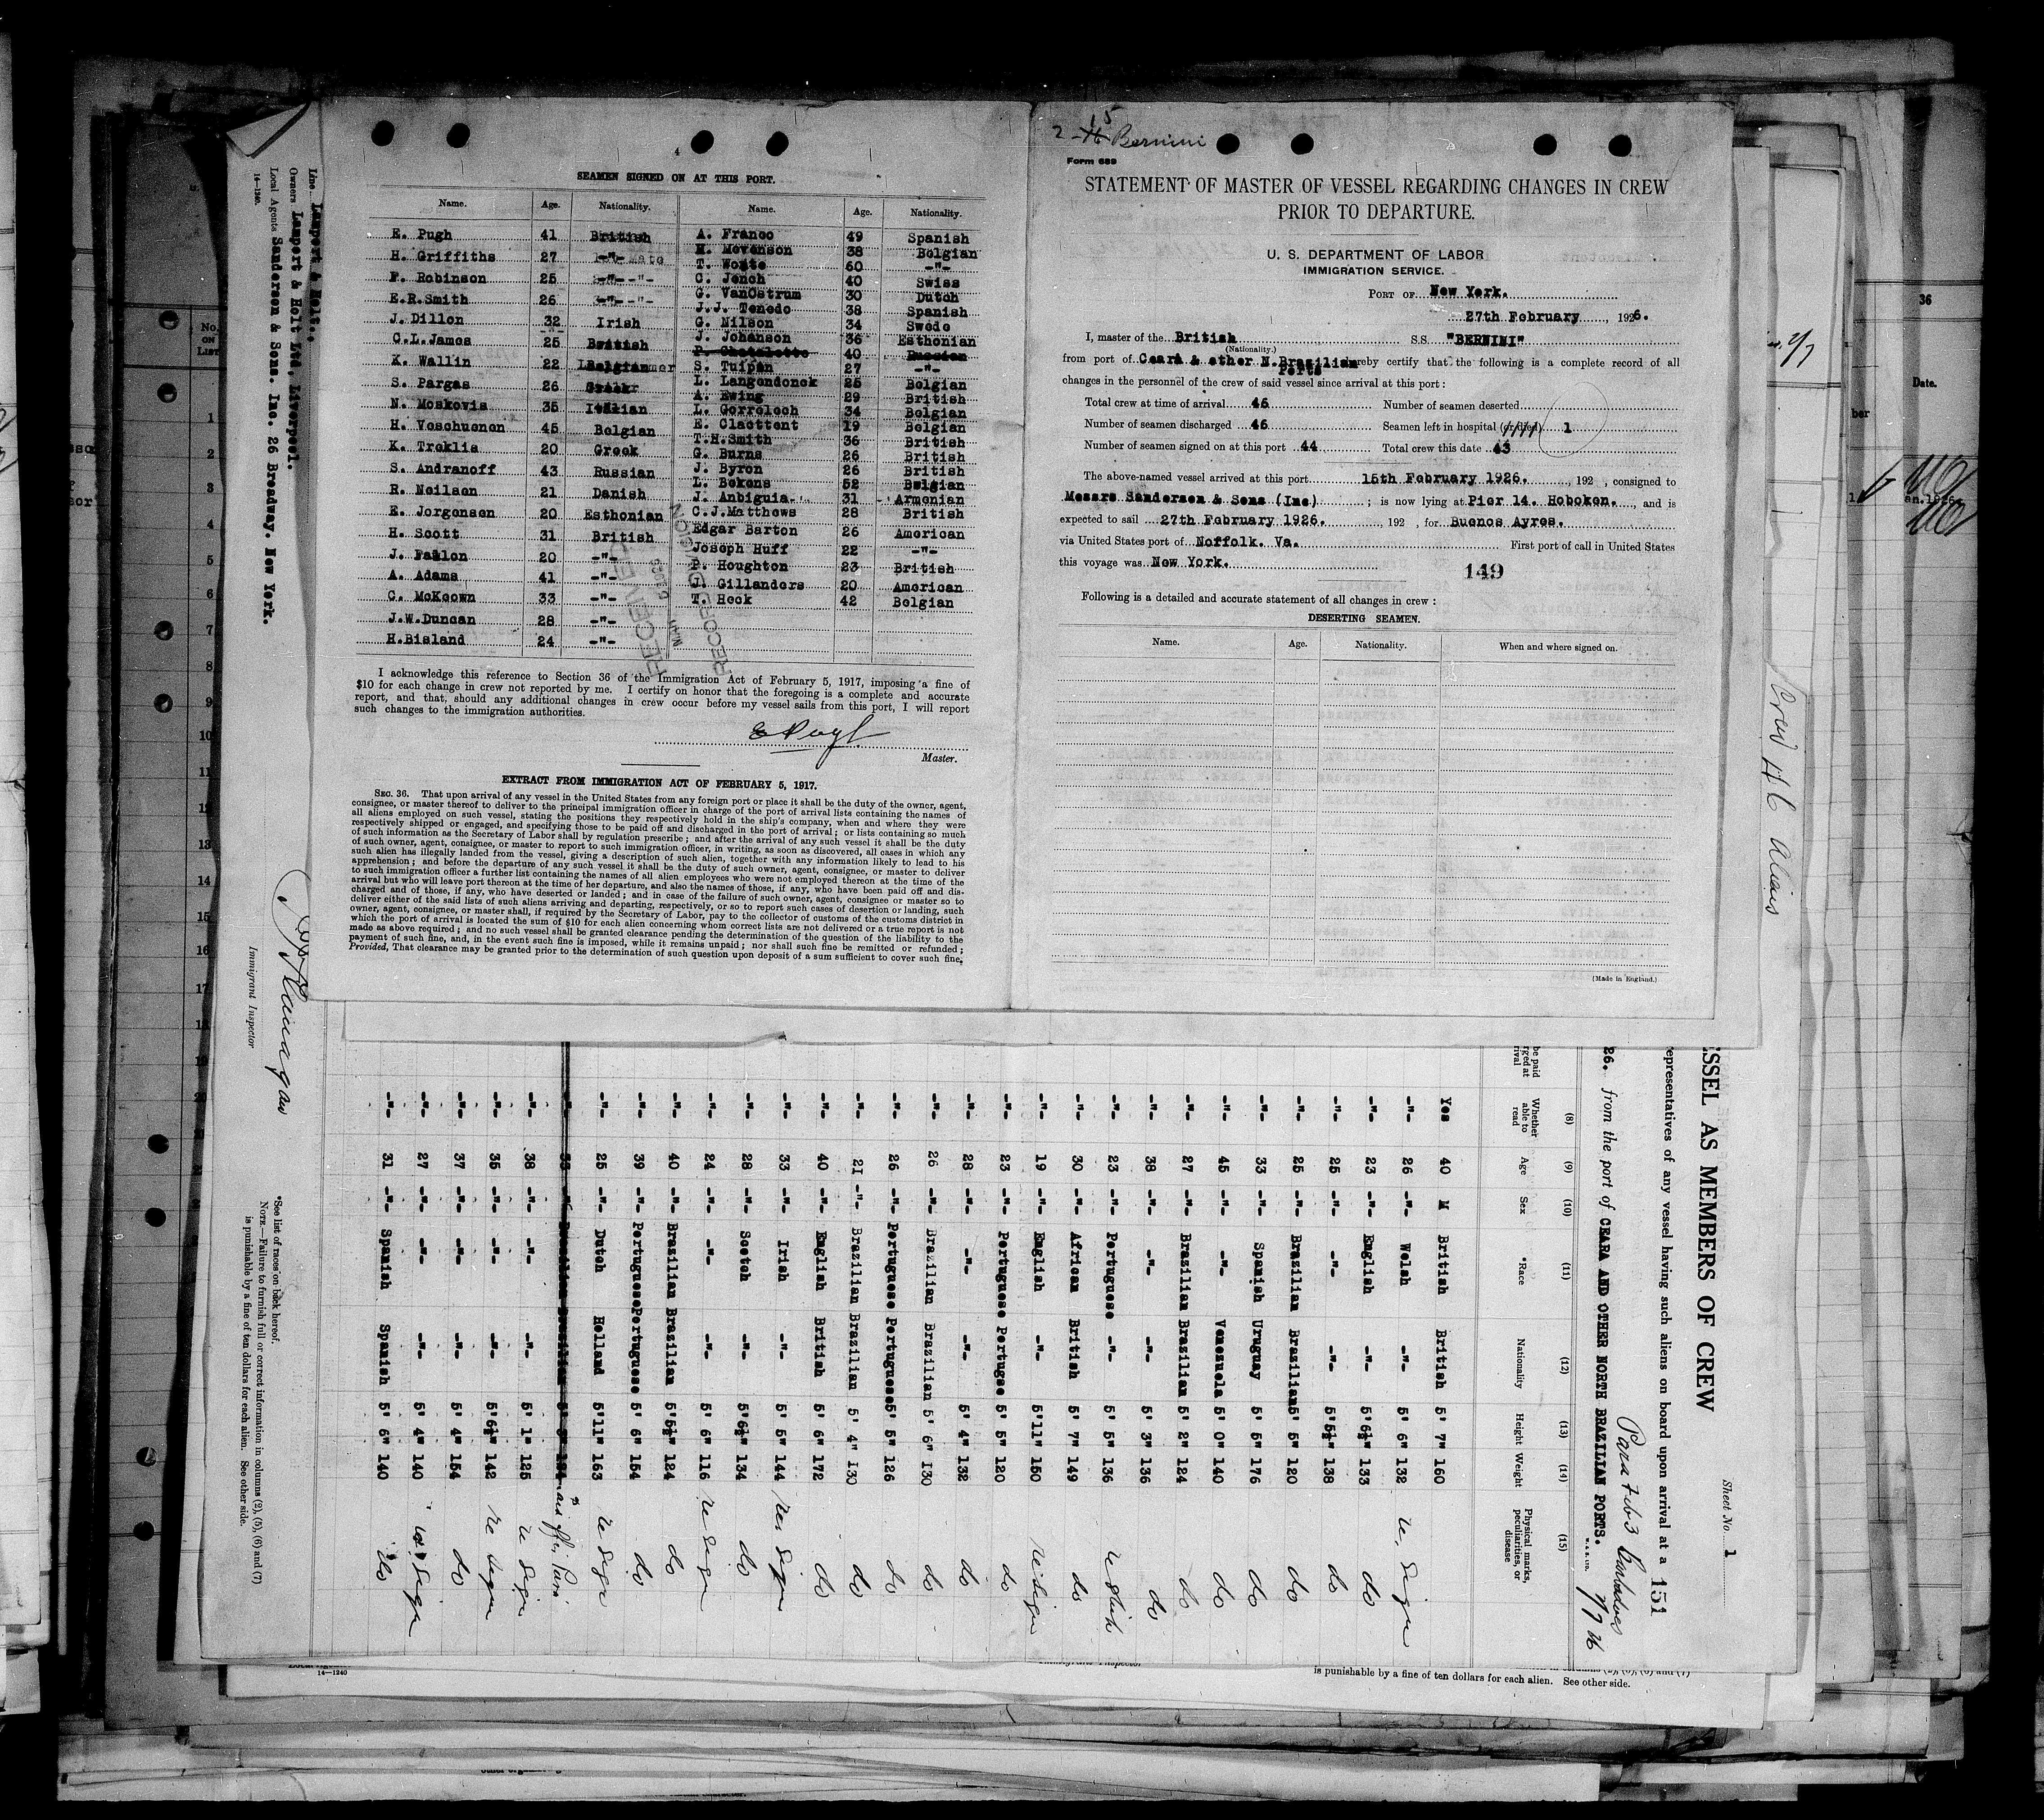 4
SEAMEN SIGNED ON AT THIS PORT.
Name. Age. Nationality. Name. Age. Nationality.
E. Pugh 41 British
H. Griffiths 27
F. Robinson 25 -"-
E.R.Smith 26 -"-
J. Dillon 32 Irish
C.L.James 25 British
K. Wallin 22
S. Pargas 26
N. Moskovis 35 Italian
H. Voschuenen 45 Belgian
K. Treklis 20 Greek
S. Andranoff 43 Russian
R. Neilsen 21 Danish
E. Jorgensen 20 Esthonian
H. Scott 31 British
J. Fallon 20 -"-
A. Adams 41 -"-
C. McKeown 33 -"-
J.W.Duncan 28 -"-
H.Bisland 24 -"-
A. Franco 49 Spanish
H. Mevenson 38 Belgian
T. 60 -"-
C. Jench 40 Swiss
G. VanOstrum 30 Dutch
J.J. Tenedo 38 Spanish
G. Nilson 34 Swede
J. Johanson 36 Esthonian
40 Russian
S. Tuipan 27 -"-
L. Langendonck 25 Belgian
A. Ewing 29 British
L. Gorreloch 34 Belgian
E. Claottent 19 Belgian
T.H.Smith 36 British
G. Burns 26 British
J. Byron 26 British
L. Bekens 52 Belgian
J. Anbiguia 31 Armenian
C.J.Matthews 28 British
Edgar Barton 26 American
Joseph Huff 22 -"-
P. Houghton 23 British
J. Gillanders 20 American
T. Heck 42 Belgian
RECEIVED
RECORD DIVISION
I acknowledge this reference to Section 36 of the Immigration Act of February 5, 1917, imposing a fine of
$10 for each change in crew not reported by me. I certify on honor that the foregoing is a complete and accurate
report, and that, should any additional changes in crew occur before my vessel sails from this port, I will report
such changes to the immigration authorities.
E Pugh
Master.
EXTRACT FROM IMMIGRATION ACT OF FEBRUARY 5, 1917.
SEC. 36. That upon arrival of any vessel in the United States from any foreign port or place it shall be the duty of the owner, agent,
consignee, or master thereof to deliver to the principal immigration officer in charge of the port of arrival lists containing the names of
all aliens employed on such vessel, stating the positions they respectively hold in the ship's company, when and where they were
respectively shipped or engaged, and specifying those to be paid off and discharged in the port of arrival; or lists containing so much
of such information as the Secretary of Labor shall by regulation prescribe; and after the arrival of any such vessel it shall be the duty
of such owner, agent, consignee, or master to report to such immigration officer, in writing, as soon as discovered, all cases in which any
such alien has illegally landed from the vessel, giving a description of such alien, together with any information likely to lead to his
apprehension; and before the departure of any such vessel it shall be the duty of such owner, agent, consignee, or master to deliver
to such immigration officer a further list containing the names of all alien employees who were not employed thereon at the time of the
arrival but who will leave port thereon at the time of her departure, and also the names of those, if any, who have been paid off and dis-
charged and of those, if any, who have deserted or landed; and in case of the failure of such owner, agent, consignee or master so to
deliver either of the said lists of such aliens arriving and departing, respectively, or so to report such cases of desertion or landing, such
owner, agent, consignee, or master shall, if required by the Secretary of Labor, pay to the collector of customs of the customs district in
which the port of arrival is located the sum of $10 for each alien concerning whom correct lists are not delivered or a true report is not
made as above required; and no such vessel shall be granted clearance pending the determination of the question of the liability to the
payment of such fine, and, in the event such fine is imposed, while it remains unpaid; nor shall such fine be remitted or refunded;
Provided, That clearance may be granted prior to the determination of such question upon deposit of a sum sufficient to cover such fine.
2 - 15 Bernini
Form 689
STATEMENT OF MASTER OF VESSEL REGARDING CHANGES IN CREW
PRIOR TO DEPARTURE.
U. S. DEPARTMENT OF LABOR
IMMIGRATION SERVICE.
PORT OF New York.
27th February, 1926.
I, master of the British S.S. "BERNINI"
(Nationality.)
from port of Ceara & other N.Brazilian ports hereby certify that the following is a complete record of all
changes in the personnel of the crew of said vessel since arrival at this port:
Total crew at time of arrival 46 Number of seamen deserted
Number of seamen discharged 46 Seamen left in hospital (or died) 1
Number of seamen signed on at this port 44 Total crew this date 43
The above-named vessel arrived at this port 15th February 1926. , 192 , consigned to
Messrs Sanderson & Sons (Inc) ; is now lying at Pier 14. Hoboken. , and is
expected to sail 27th February 1926. , 192 , for Buenos Ayres.
via United States port of Noffolk. Va. First port of call in United States
this voyage was New York.
149
Following is a detailed and accurate statement of all changes in crew:
DESERTING SEAMEN.
Name. Age. Nationality. When and where signed on.
(Made in England.)
Line Lampert & Holt.
Owners Lampert & Holt Ltd, Liverpool.
Local Agents Sanderson & Sons. Inc. 26 Broadway. New York.
14-1240.
Immigrant Inspector
*See list of races on back hereof.
NOTE.—Failure to furnish full or correct information in columns (2), (5), (6) and (7)
is punishable by a fine of ten dollars for each alien. See other side.
Sheet No. 1
ESSEL AS MEMBERS OF CREW
151
epresentatives of any vessel having such aliens on board upon arrival at a
26. from the port of CEARA AND OTHER NORTH BRAZILIAN PORTS.
Para Feb 3 Barbados 7/26
(8) (9) (10) (11) (12) (13) (14) (15)
Whether able to read Age Sex *Race Nationality Height Weight Physical marks, peculiarities, or disease
Yes 40 M British British 5' 7" 160
-"- 26 -"- Welsh -"- 5' 6" 132
-"- 23 -"- English -"- 5'6½" 133 do
-"- 25 -"- -"- -"- 5'5½" 138 do
-"- 25 -"- Brazilian Brazilian 5' 5" 120 do
-"- 33 -"- Spanish Uruguay 5' 5" 176 do
-"- 45 -"- -"- Venesuela 5' 0" 140 do
-"- 27 -"- Brazilian Brazilian 5' 2" 124 do
-"- 38 -"- -"- -"- 5' 3" 136 do
-"- 23 -"- Portuguese -"- 5' 5" 136
-"- 30 -"- African British 5' 7" 149 do
-"- 19 -"- English -"- 5'11" 150
-"- 23 -"- Portuguese Portugse 5' 5" 120 do
-"- 28 -"- -"- -"- 5' 4" 132 do
-"- 26 -"- Brazilian Brazilian 5' 6" 130 do
-"- 26 -"- Portuguese Portuguese 5' 5" 126 do
-"- 21 -"- Brazilian Brazilian 5' 4" 130 do
-"- 40 -"- English British 5' 6" 172 do
-"- 33 -"- Irish -"- 5' 5" 144
-"- 28 -"- Scotch -"- 5'6½" 134 do
-"- 24 -"- -"- -"- 5' 6" 116
-"- 40 -"- Brazilian Brazilian 5'5½" 124 do
-"- 39 -"- Portuguese Portuguese 5' 6" 154 do
-"- 25 -"- Dutch Holland 5'11" 163
-"- 38 -"- -"- -"- 5' 1" 125
-"- 35 -"- -"- -"- 5'6½" 142
-"- 37 -"- -"- -"- 5' 4" 154 do
-"- 27 -"- -"- -"- 5' 4" 140
-"- 31 -"- Spanish Spanish 5' 6" 140 do
Crew 46 aliens
is punishable by a fine of ten dollars for each alien. See other side.
14—1240
No. ON LIST
1
2
3
4
5
6
7
8
9
10
11
12
13
14
15
16
17
18
19
20
36
Date.